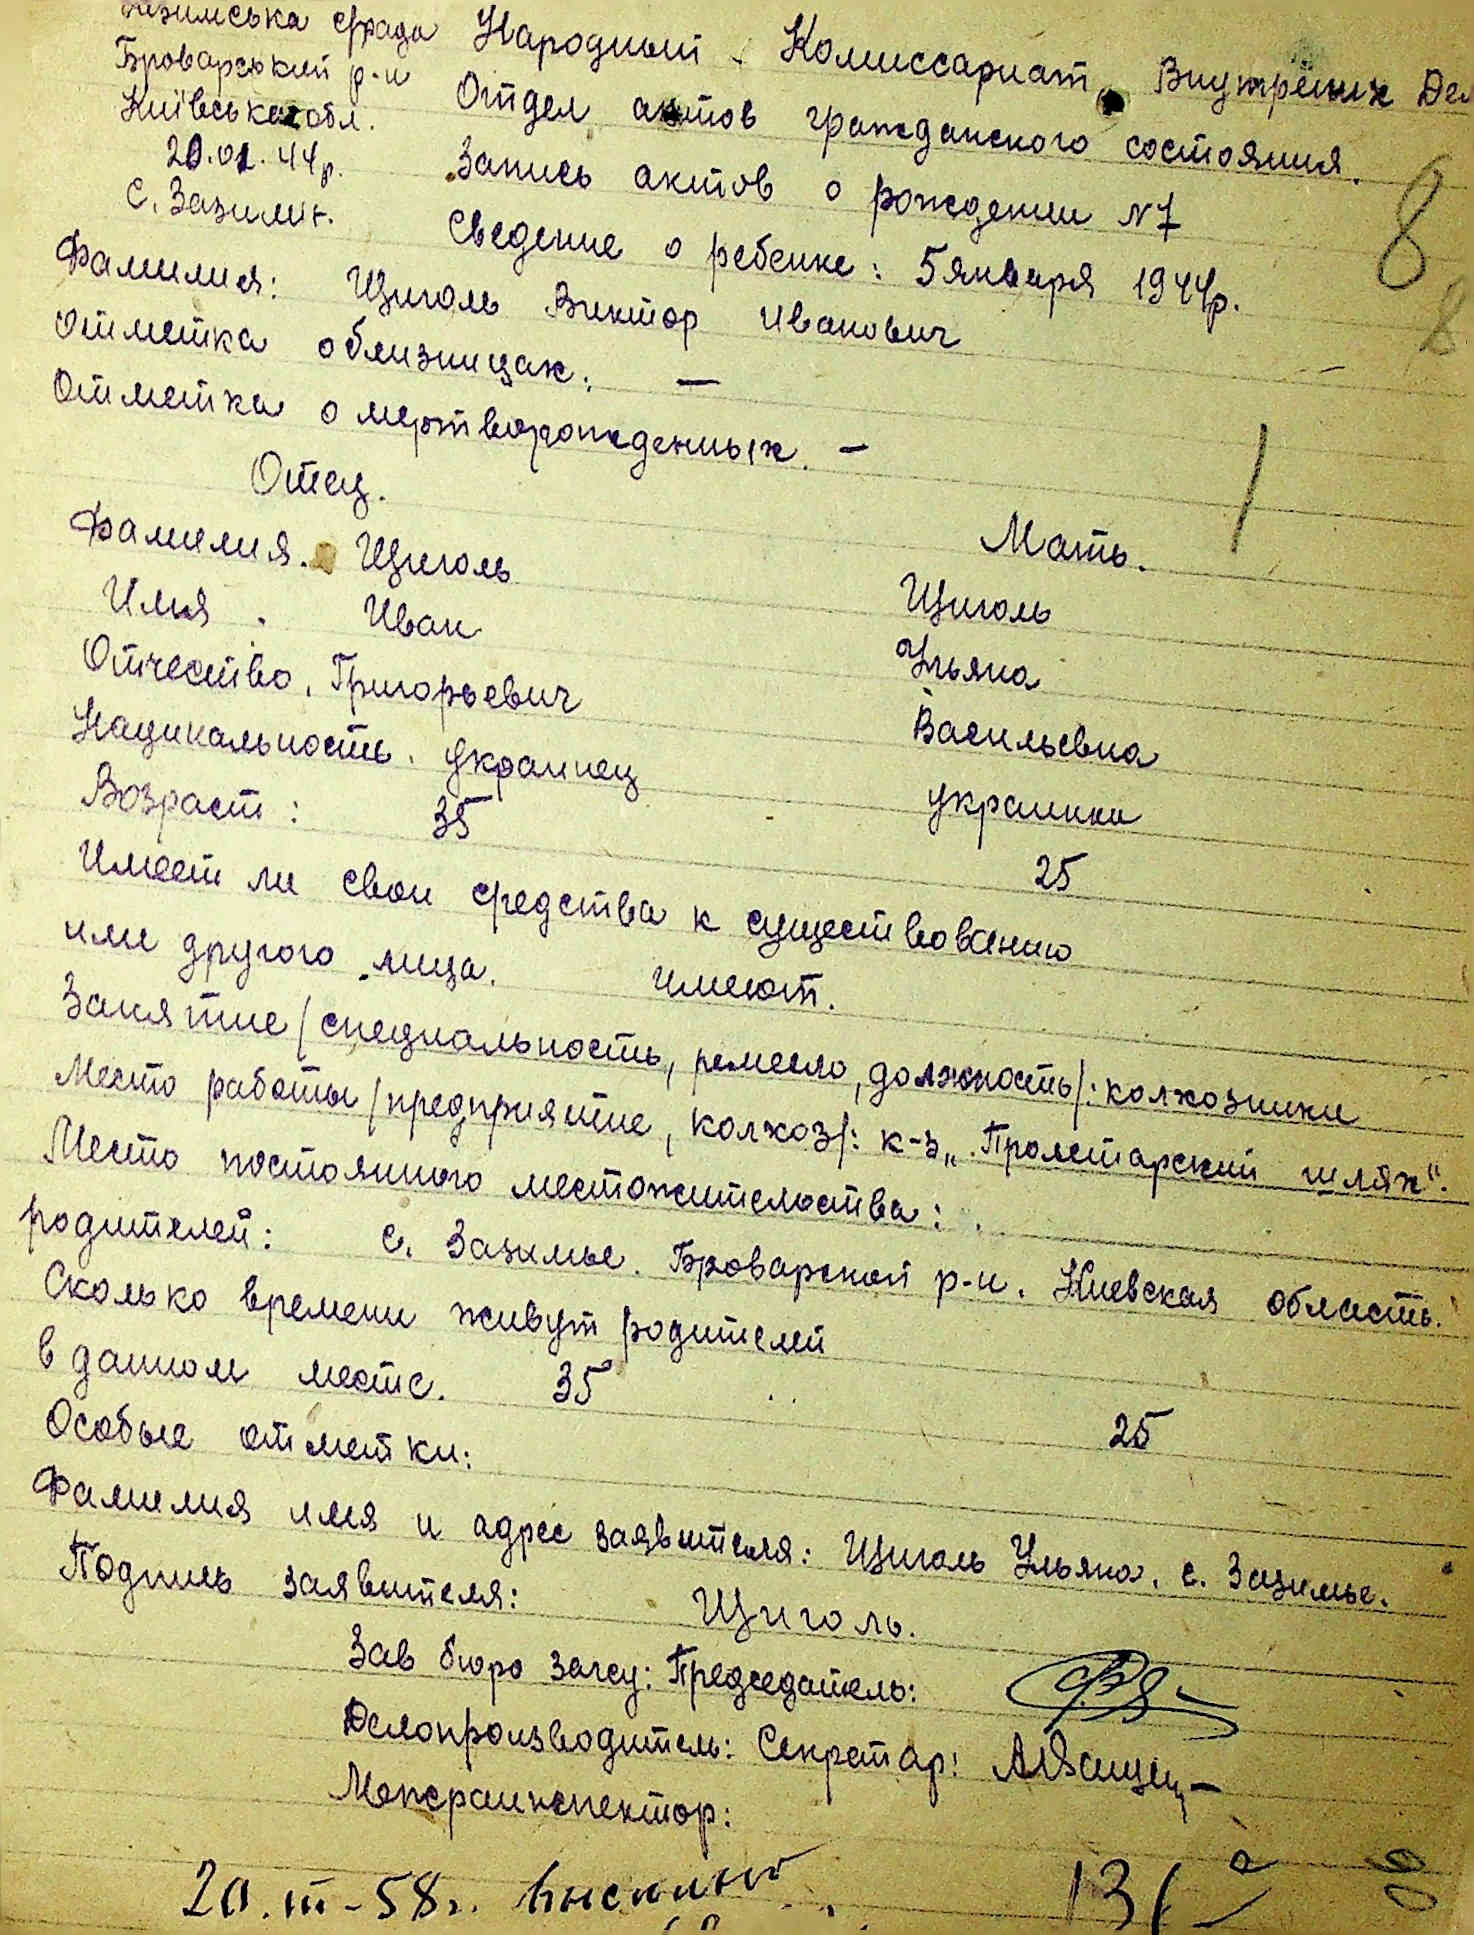 Зазимська с/рада
Броварський р-н
Київська обл.
20.01.44р.
с. Зазим'є.
Народный Комиссариат Внутрених Дел
Отдел актов гражданского состояния.
Запись актов о рождении N7
Сведение о ребенке: 5 января 1944р.
Фамилия: Щиголь Виктор Иванович
Отметка облизницах: —
Отметка о мертворожденных. —
Отец.
Мать.
Фамилия. Щиголь
Щиголь
Имя. Иван
Ульяна
Отчество. Григорьевич
Васильевна
Нацикальность. украинец
украинка
Возраст: 35
25
Имеет ли свои средства к существованию
или другого лица. имеют.
Занятие /специальность, ремесло, должность/: колхозники
Место работы /предприятие, колхоз/: к-з „Пролетарский шлях“.
Место постоянного местожительства:
родителей: с. Зазимье. Броварской р-н. Киевская область.
Сколько времени живут родителей
в данном месте. 35
25
Особые отметки:
Фамилия имя и адрес заявителя: Щиголь Ульяна. с. Зазимье.
Подпись заявителя: Щиголь.
Зав бюро загсу: Председатель:
Делопроизводитель: Секретар:
20.III-58г.
8
8